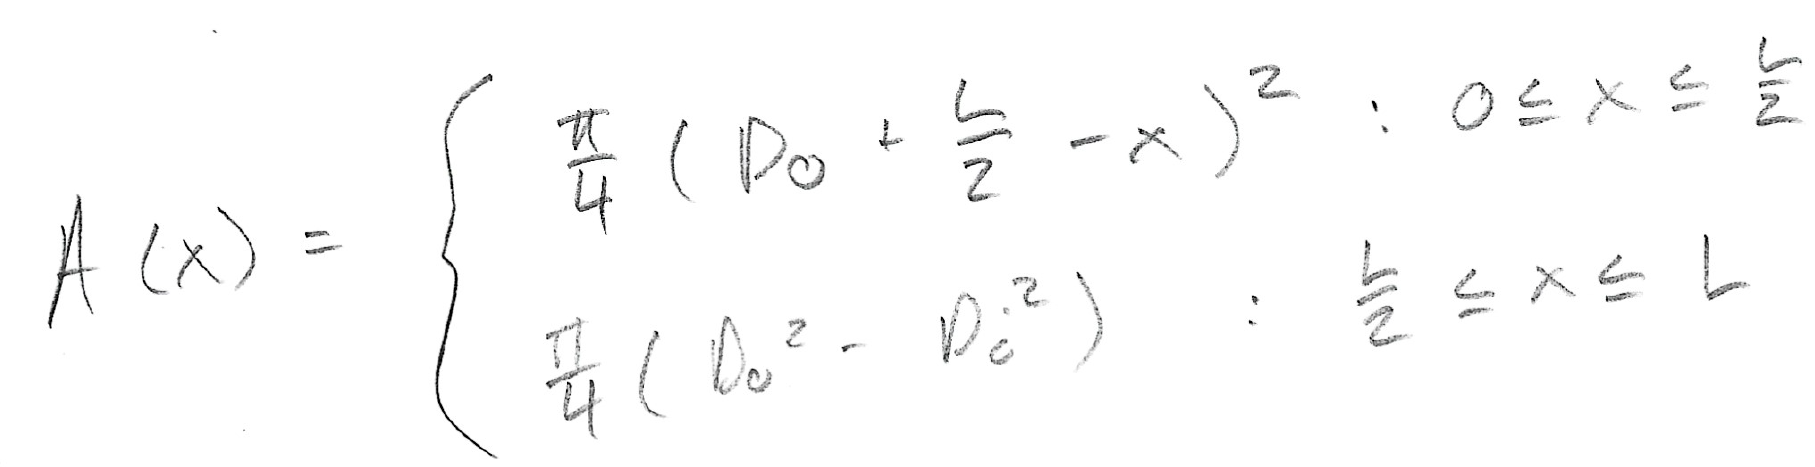 A(x) = { π/4 (D₀ + L/2 - x)² : 0 ≤ x ≤ L/2
π/4 (D₀² - Dᵢ²) : L/2 ≤ x ≤ L